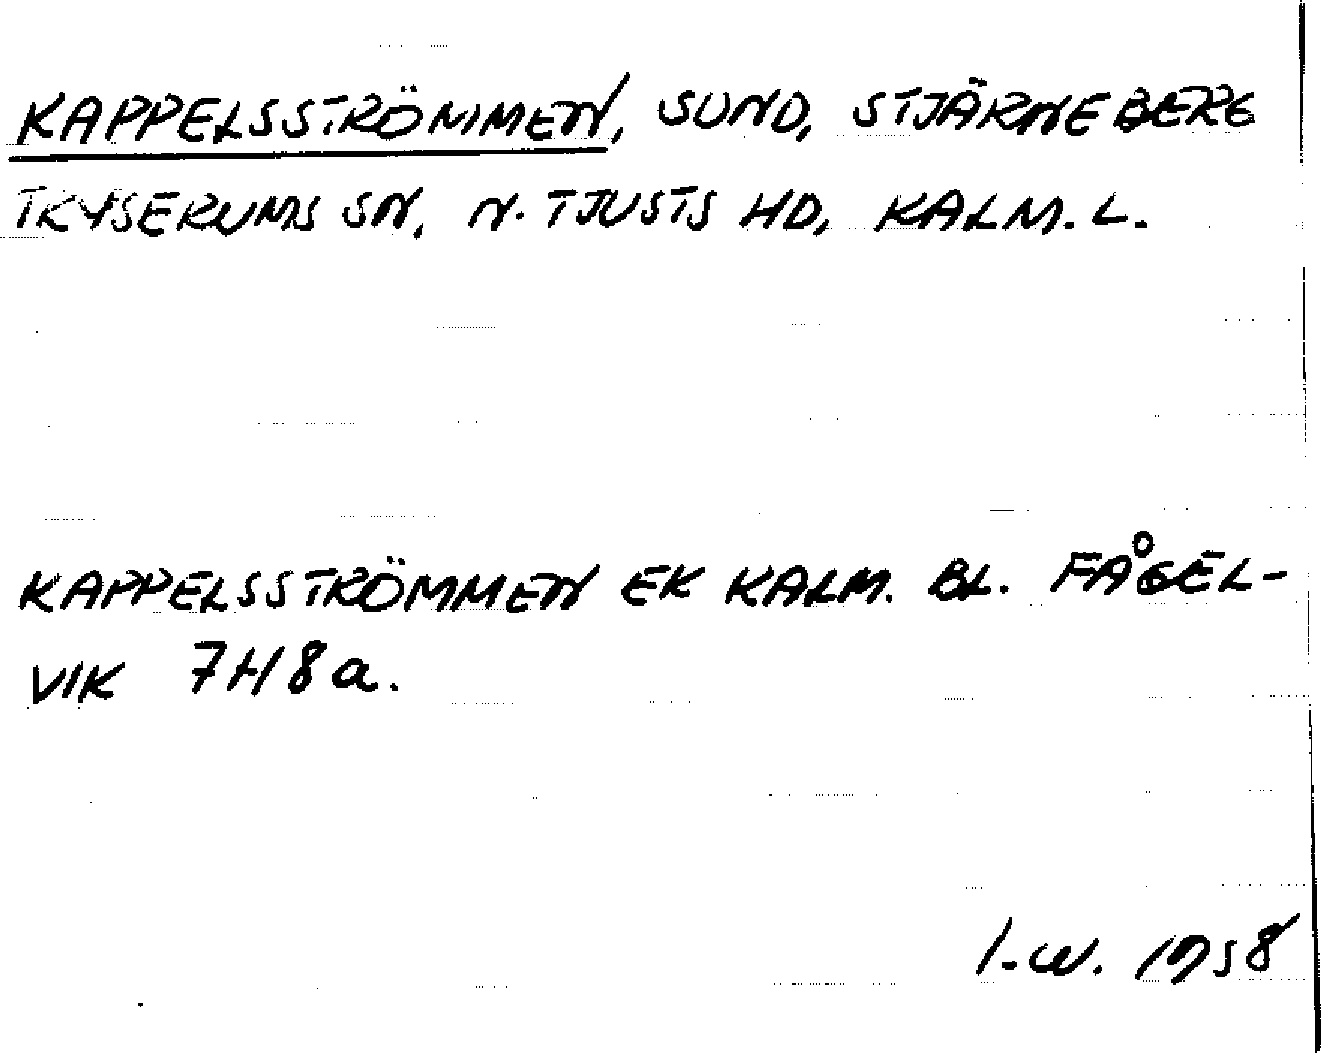 KAPPELSSTRÖMMEN, SUND, STJÄRNEBERG
TRYSERUMS SN, N. TJUSTS HD, KALM. L.
KAPPELSSTRÖMMEN EK KALM. BL. FÅGEL-
VIK 7H8a.
I-W. 1958